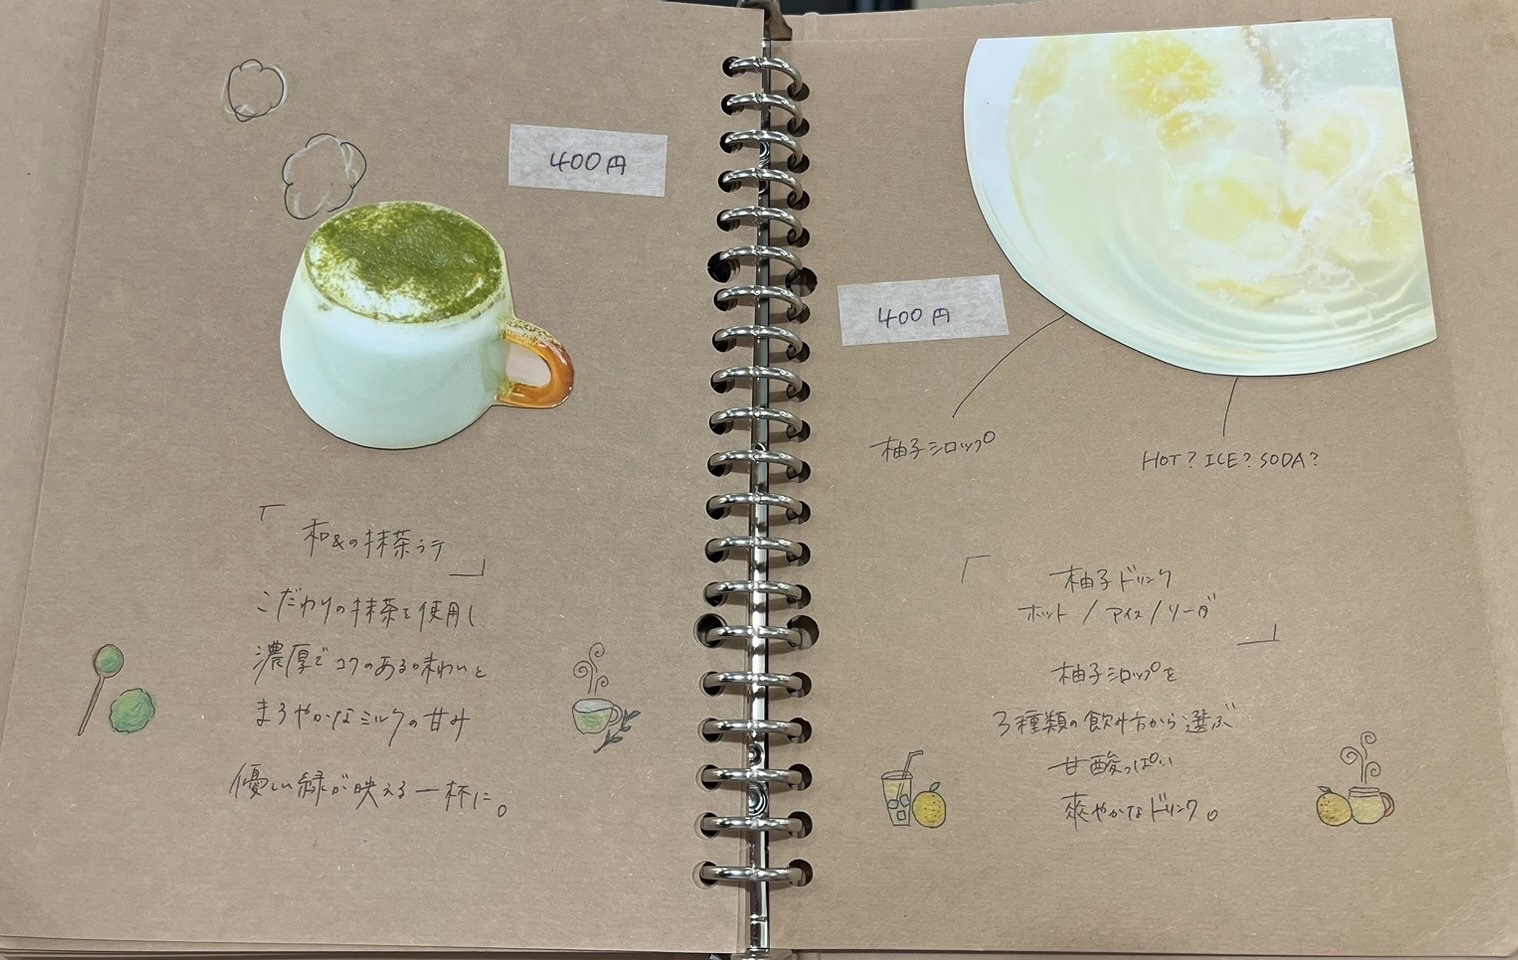 400円
「
和&の抹茶ラテ
」
こだわりの抹茶を使用し
濃厚でコクのある味わいと
まろやかなミルクの甘み
優しい緑が映える一杯に。
400円
柚子シロップ
HOT? ICE? SODA?
「
柚子ドリンク
ホット / アイス / ソーダ
」
柚子シロップを
3種類の飲み方から選ぶ
甘酸っぱい
爽やかなドリンク。